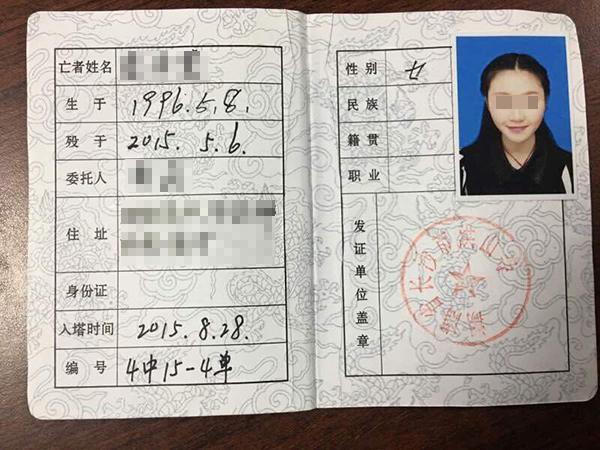 亡者姓名
生于 1996.5.8.
殁于 2015.5.6.
委托人
住址
身份证
入塔时间 2015.8.28.
编号 4中15-4单
性别 女
民族
籍贯
职业
发证单位盖章
长沙